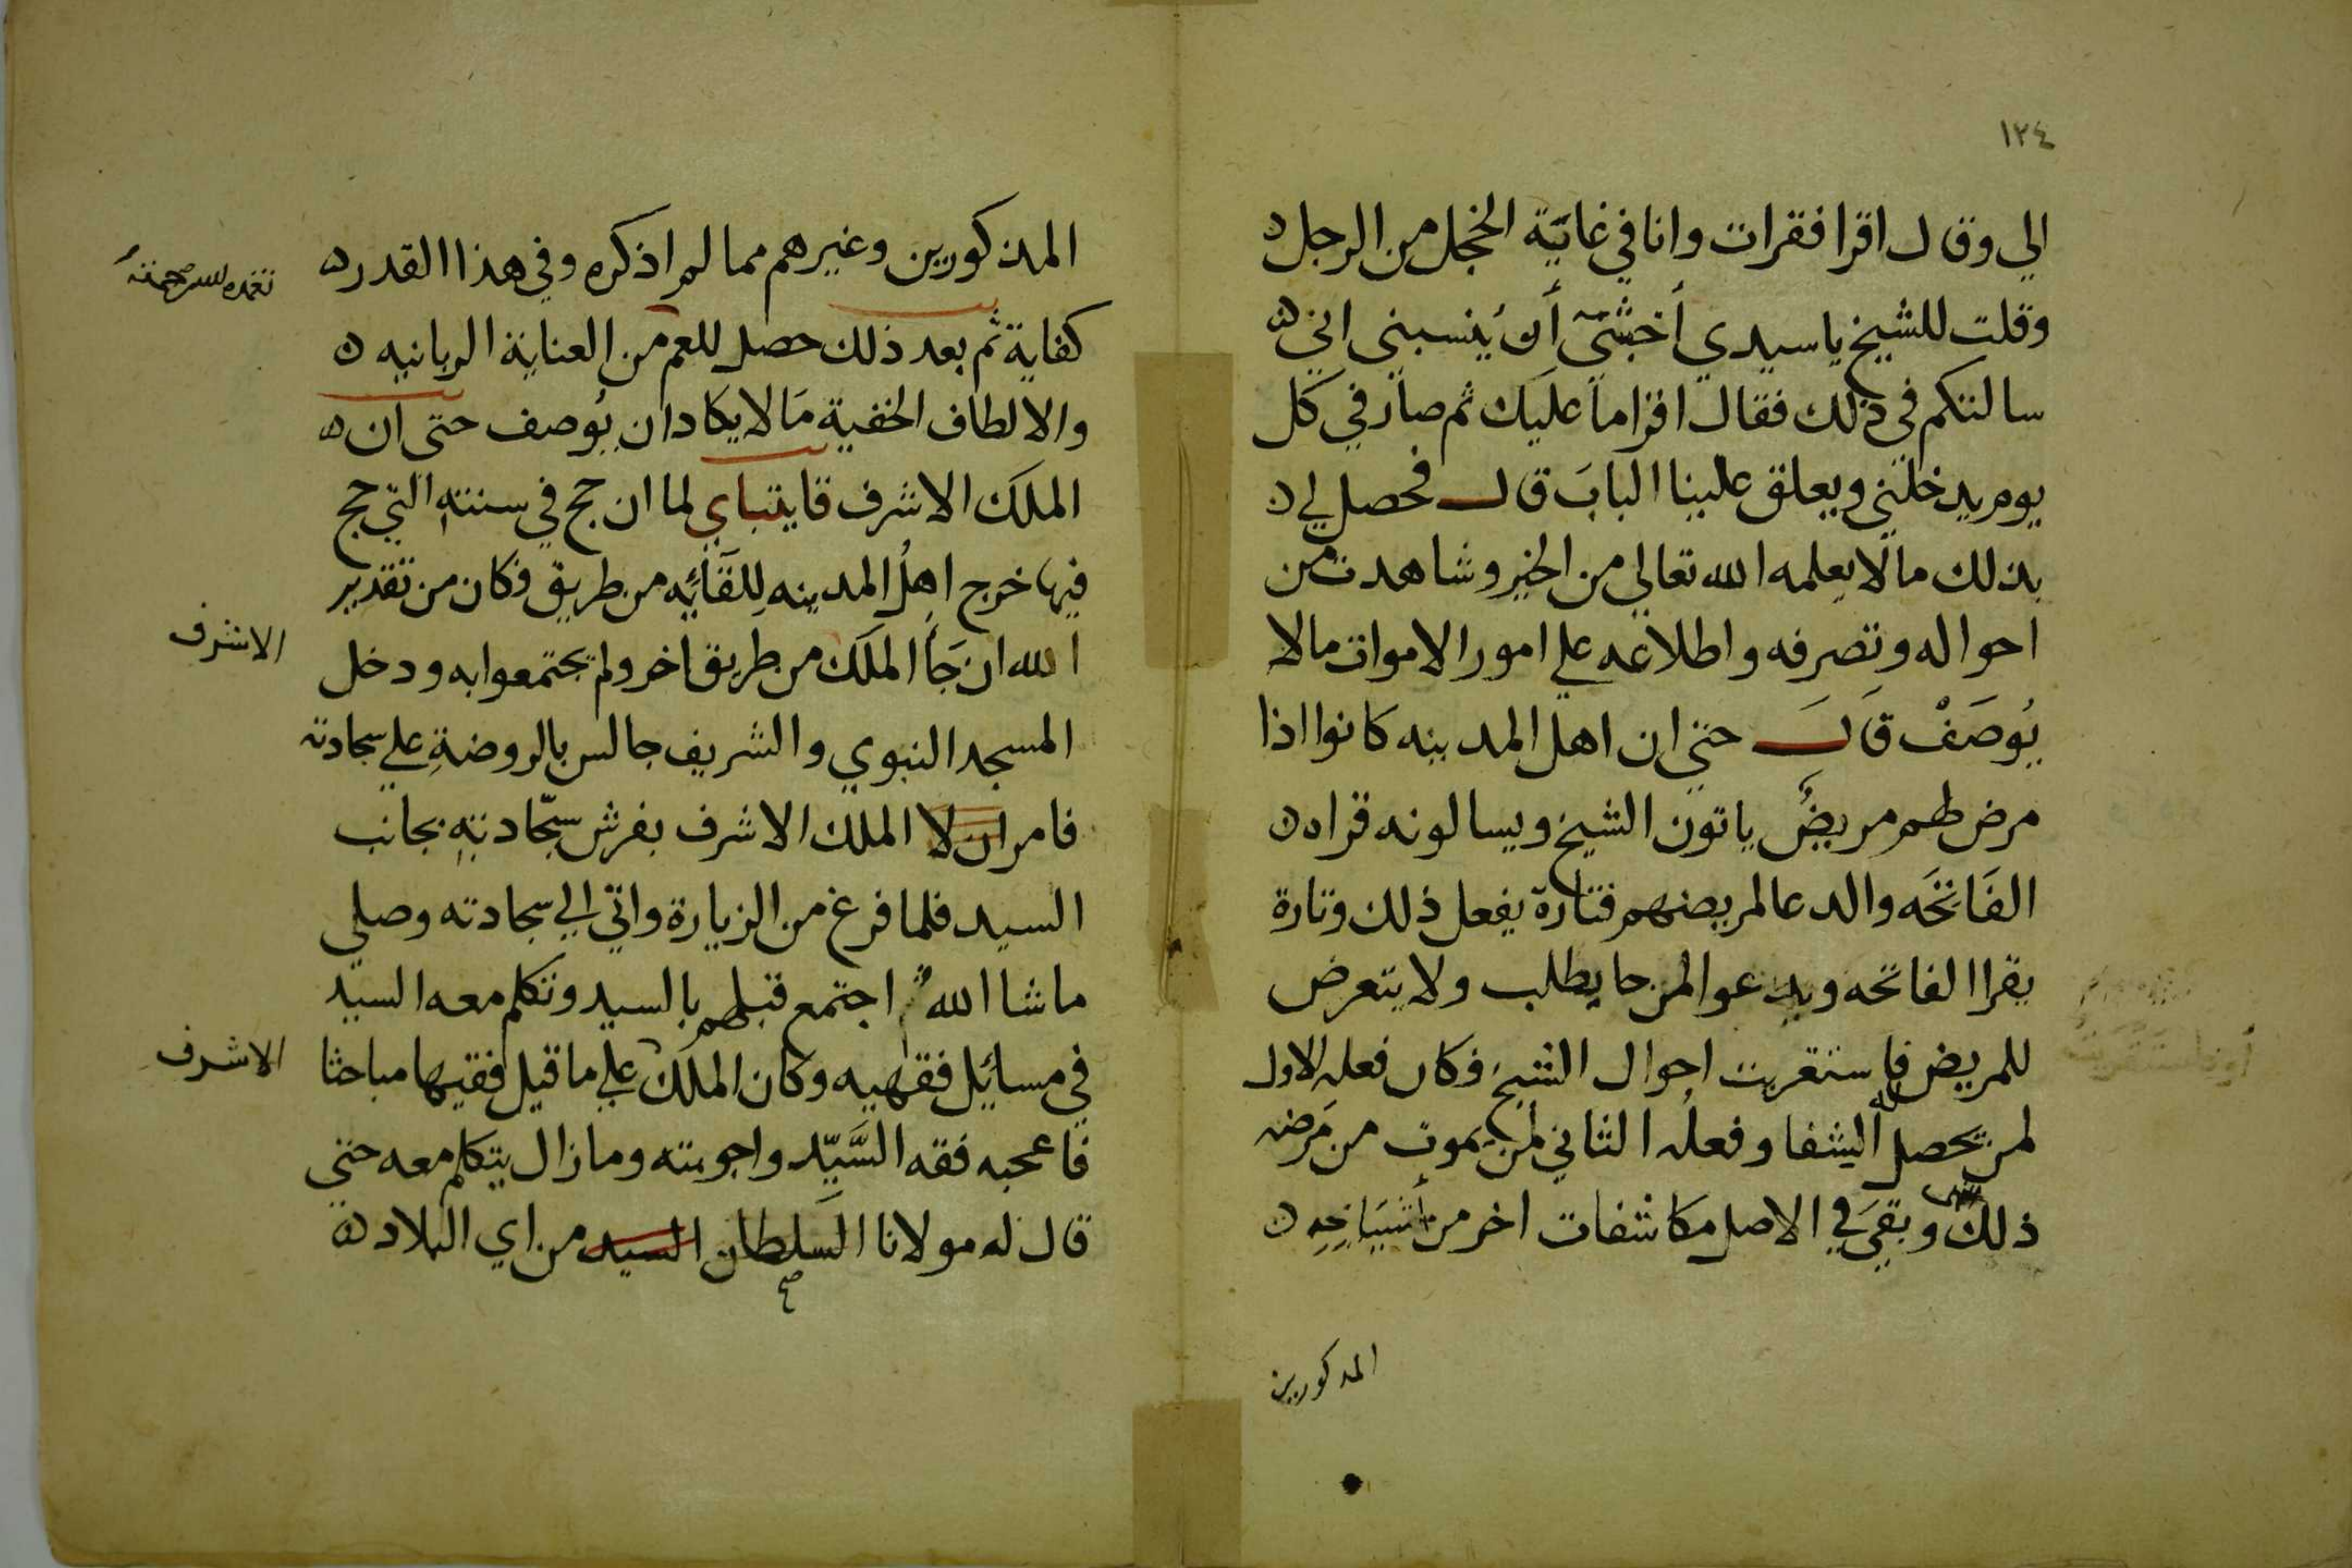 ١٢٤
الي وقال اقرا فقرات وانا في غاية الخجل من الرجل
وقلت للشيخ يا سيدي أخشى أن ينسبني اني
سالتكم في ذلك فقال اقرا ما عليك ثم صار في كل
يوم يدخلني ويعلق علينا الباب قال فحصل لي
بذلك ما لا يعلمه الله تعالي من الخير وشاهدت من
احواله وتصرفه واطلاعه علي امور الاموات ما لا
يُوصَفْ قال حتي ان اهل المدينه كانوا اذا
مرض لهم مريضُ ياتون الشيخ ويسالونه قراه
الفَاتحَه والدعا لمريضهم فتارة يفعل ذلك وتارة
يقرا الفاتحه ويدعوا لمن حا يطلب ولا يتعرض
للمريض فاستقريت احوال الشيخ فكان فعله الاول
لمن يحصل له الشفا وفعله الثاني لمن يموت من مَرضه
ذلك وبقي في الاصل مكاشفات اخر من أشياخِهِ
المذكورين
المذكورين وغيرهم مما لم اذكره وفي هذا القدر
تغمده الله برحمته
كفاية ثم بعد ذلك حصل للعم من العناية الربانيه
والالطاف الخفية مَا لا يكاد ان يُوصف حتى ان
الملك الاشرف قايتباي لما ان حج في سنته التي حج
فيها خرج اهل المدينه لِلقَائِه من طريق فكان من تقدير
الله ان جَأ الملك من طريق اخر ولم يجتمعوا به ودخل
الاشرف
المسجد النبوي والشريف جالس بالروضةِ علي سجادته
فامر ان لا الملك الاشرف بفرش سجّادتهِ بجانب
السيد فلما فرغ من الزيارة واتي الي سجادته وصلي
ما شا الله اجتمع قبلهم بالسيد وتكلم معه السيد
في مسائل فقهيه وكان الملك علي ما قيل فقيها مباحثا
الاشرف
فاعجبه فقه السَّيّد واجوبته وما زال يتكلم معه حتي
قال له مولانا السَلطان السيد من اي البلاد